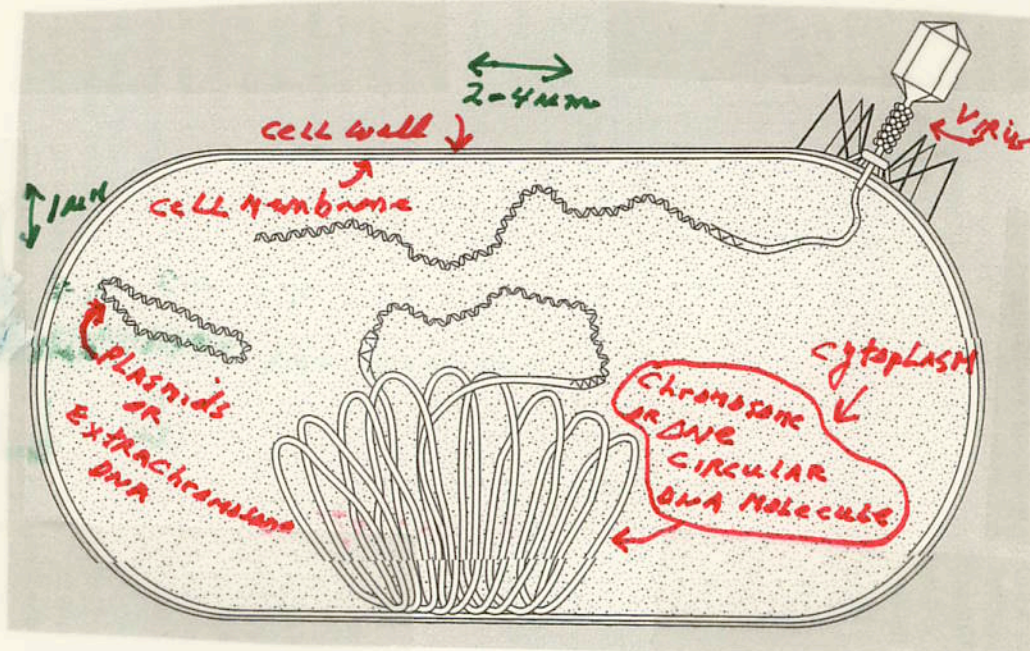 2-4 µm
cell wall
Virus
1 µM
cell Membrane
Cytoplasm
Plasmids
OR
Extrachromosone
DNA
Chromosone
OR ONE
CIRCULAR
DNA Molecule